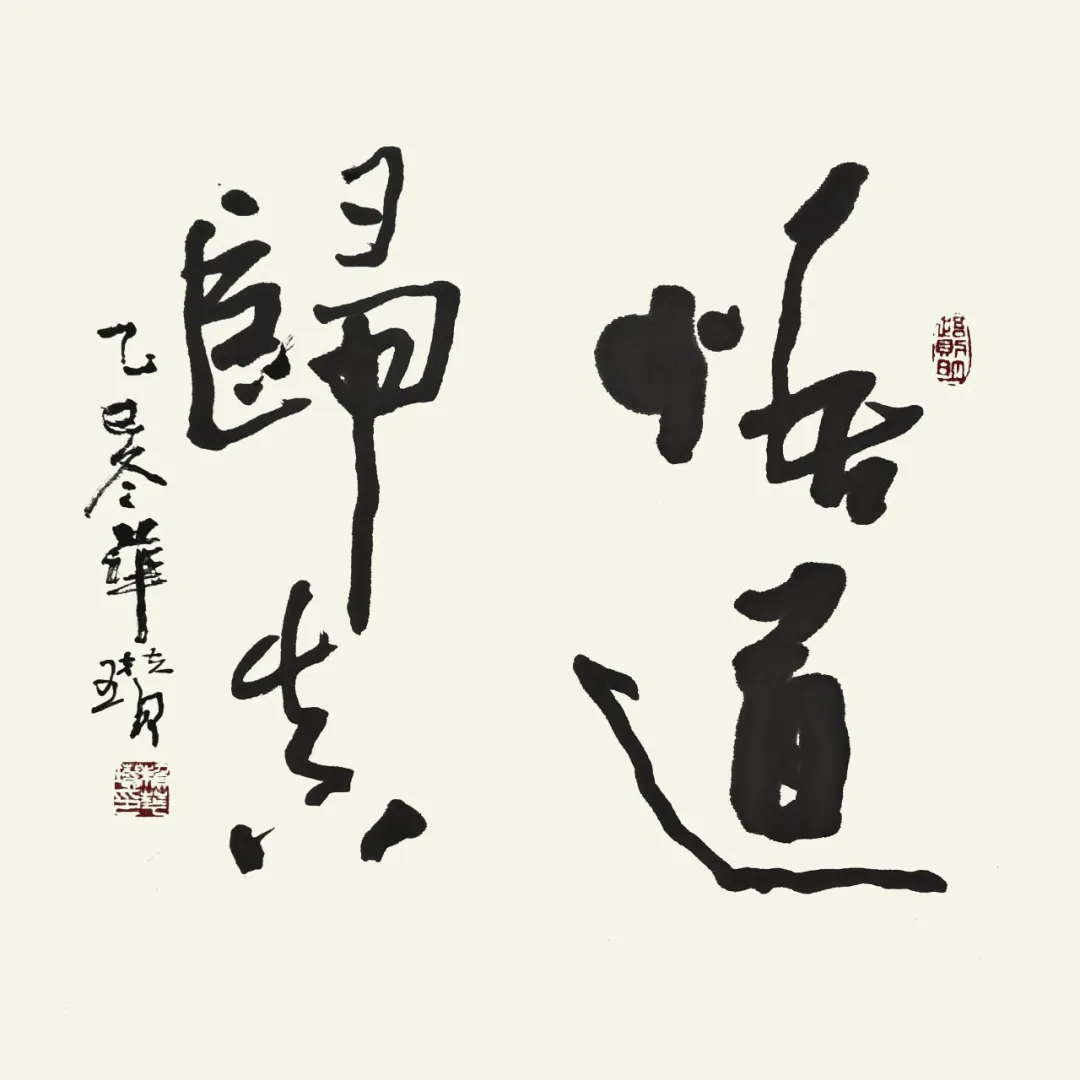 悟道
歸真
乙巳冬華